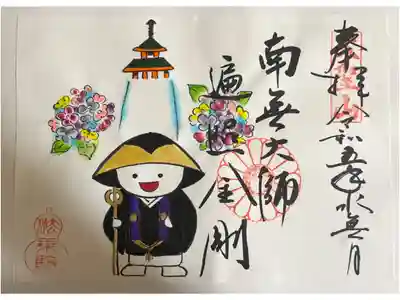 奉拝 令和五年水無月
南無大師
遍照金剛